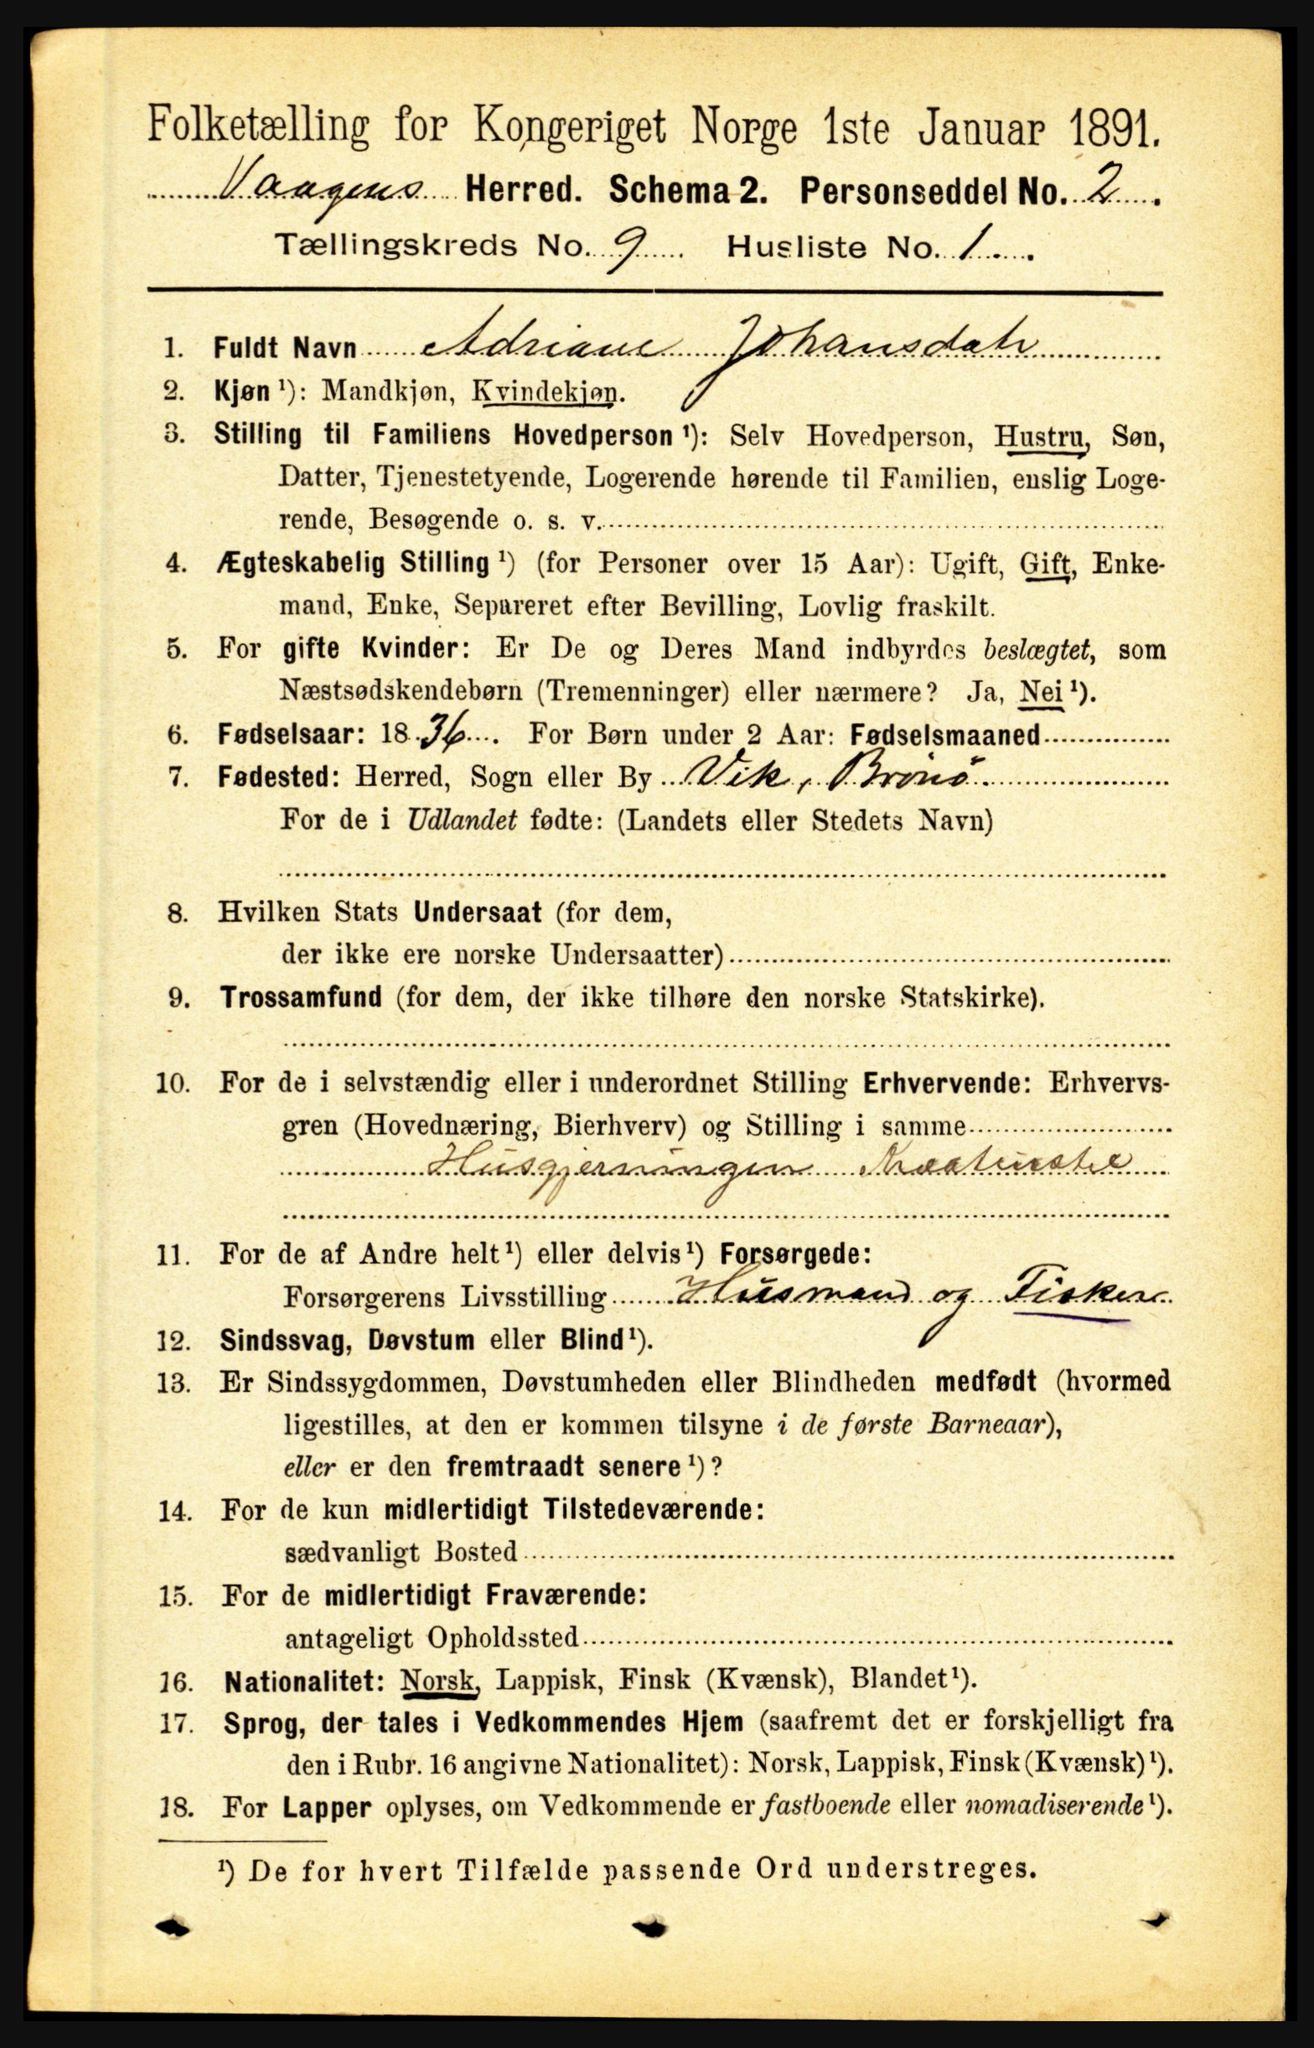 Folketælling for Kongeriget Norge 1ste Januar 1891.
Vaagens Herred. Schema 2. Personseddel No. 2.
Tællingskreds No. 9. Husliste No. 1.
1. Fuldt Navn Adriane Johansdatr
2. Kjøn ¹): Mandkjøn, Kvindekjøn.
3. Stilling til Familiens Hovedperson ¹): Selv Hovedperson, Hustru, Søn,
Datter, Tjenestetyende, Logerende hørende til Familien, enslig Loge-
rende, Besøgende o. s. v.
4. Ægteskabelig Stilling ¹) (for Personer over 15 Aar): Ugift, Gift, Enke-
mand, Enke, Separeret efter Bevilling, Lovlig fraskilt.
5. For gifte Kvinder: Er De og Deres Mand indbyrdes beslægtet, som
Næstsødskendebørn (Tremenninger) eller nærmere? Ja, Nei ¹).
6. Fødselsaar: 1836. For Børn under 2 Aar: Fødselsmaaned
7. Fødested: Herred, Sogn eller By Vik, Brønø.
For de i Udlandet fødte: (Landets eller Stedets Navn)
8. Hvilken Stats Undersaat (for dem,
der ikke ere norske Undersaatter)
9. Trossamfund (for dem, der ikke tilhøre den norske Statskirke).
10. For de i selvstændig eller i underordnet Stilling Erhvervende: Erhvervs-
gren (Hovednæring, Bierhverv) og Stilling i samme
Husgjerningen Kreaturstel
11. For de af Andre helt ¹) eller delvis ¹) Forsørgede:
Forsørgerens Livsstilling Husmand og Fisker
12. Sindssvag, Døvstum eller Blind ¹).
13. Er Sindssygdommen, Døvstumheden eller Blindheden medfødt (hvormed
ligestilles, at den er kommen tilsyne i de første Barneaar),
eller er den fremtraadt senere ¹)?
14. For de kun midlertidigt Tilstedeværende:
sædvanligt Bosted
15. For de midlertidigt Fraværende:
antageligt Opholdssted
16. Nationalitet: Norsk, Lappisk, Finsk (Kvænsk), Blandet ¹).
17. Sprog, der tales i Vedkommendes Hjem (saafremt det er forskjelligt fra
den i Rubr. 16 angivne Nationalitet): Norsk, Lappisk, Finsk (Kvænsk) ¹).
18. For Lapper oplyses, om Vedkommende er fastboende eller nomadiserende ¹).
¹) De for hvert Tilfælde passende Ord understreges.